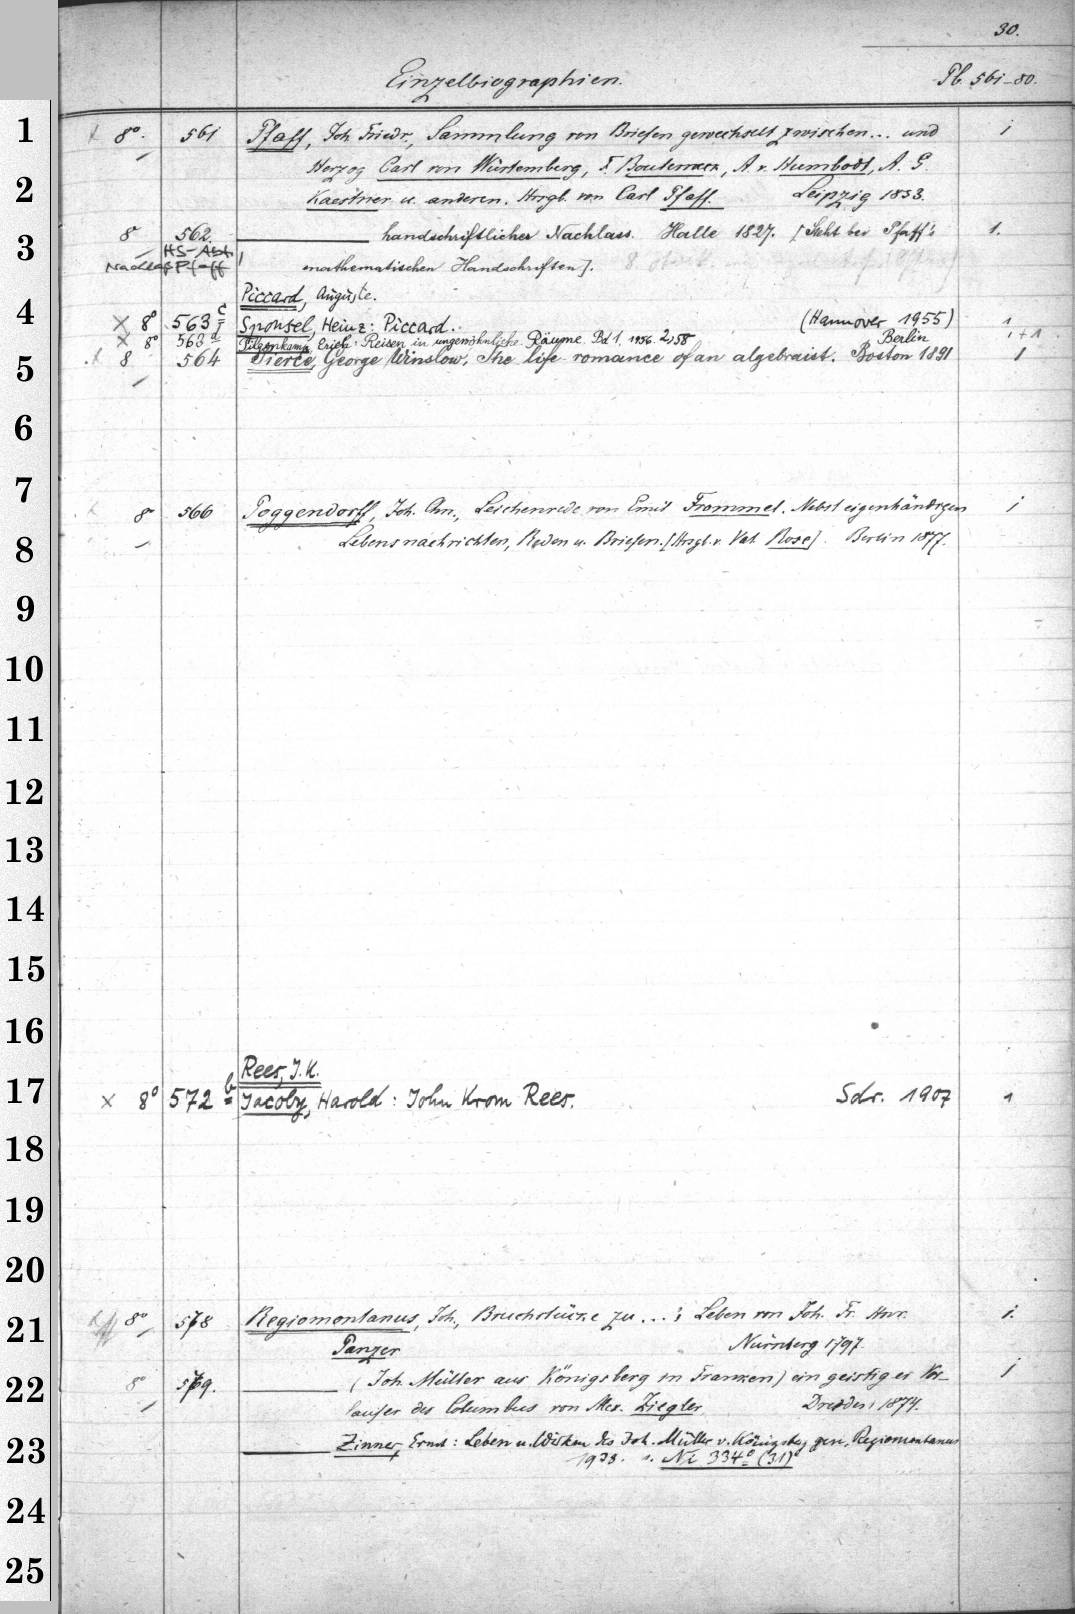 30.
Einzelbiographien.
Pb. 561-80.
1
8°. 561 Pfaff, Joh. Friedr., Sammlung von Briefen gewechselt zwischen... und 1
Herzog Carl von Würtemberg, F. Bouterweck, A. v. Humbodt, A. G.
2
Kaestner u. anderen. Hrsgb. von Carl Pfaff. Leipzig 1853.
8° 562. handschriftlicher Nachlass. Halle 1827. [Steht bei Pfaff's 1.
3
HS-Abt. Nachlaß Pfaff
mathematischen Handschriften].
Piccard, Auguste.
4
× 8° 563 c Sponsel, Heinz: Piccard. (Hannover 1955) 1
× 8° 563 d Pilzenkamp, Erich: Reisen in ungewöhnliche Räume. Bd 1, 1956. 2, 58 Berlin 1+1
5
8 564 Pierce, George Winslow, The life-romance of an algebraist. Boston 1891 1
6
7
8° 566 Poggendorff, Joh. Chn., Leichenrede von Emil Frommel. Nebst eigenhändigen 1
8
Lebensnachrichten, Reden u. Briefen. [Hrsgb. v. Val. Rose]. Berlin 1877.
9
10
11
12
13
14
15
16
Rees, J.K.
17
× 8° 572 b Jacoby, Harold: John Krom Rees. Sdr. 1907 1
18
19
20
21
8° 578 Regiomontanus, Joh., Bruchstücke zu ...'s Leben von Joh. Fr. Hnr. 1.
Panzer Nürnberg 1797.
22
8° 579. (Joh. Müller aus Königsberg in Franken) ein geistiger Vor- 1
laufer des Columbus von Alex. Ziegler. Dresden 1874.
23
Zinner, Ernst: Leben u. Wirken des Joh. Müller v. Königsberg gen. Regiomontanus
1938. s. Nc 334° (31)
24
25